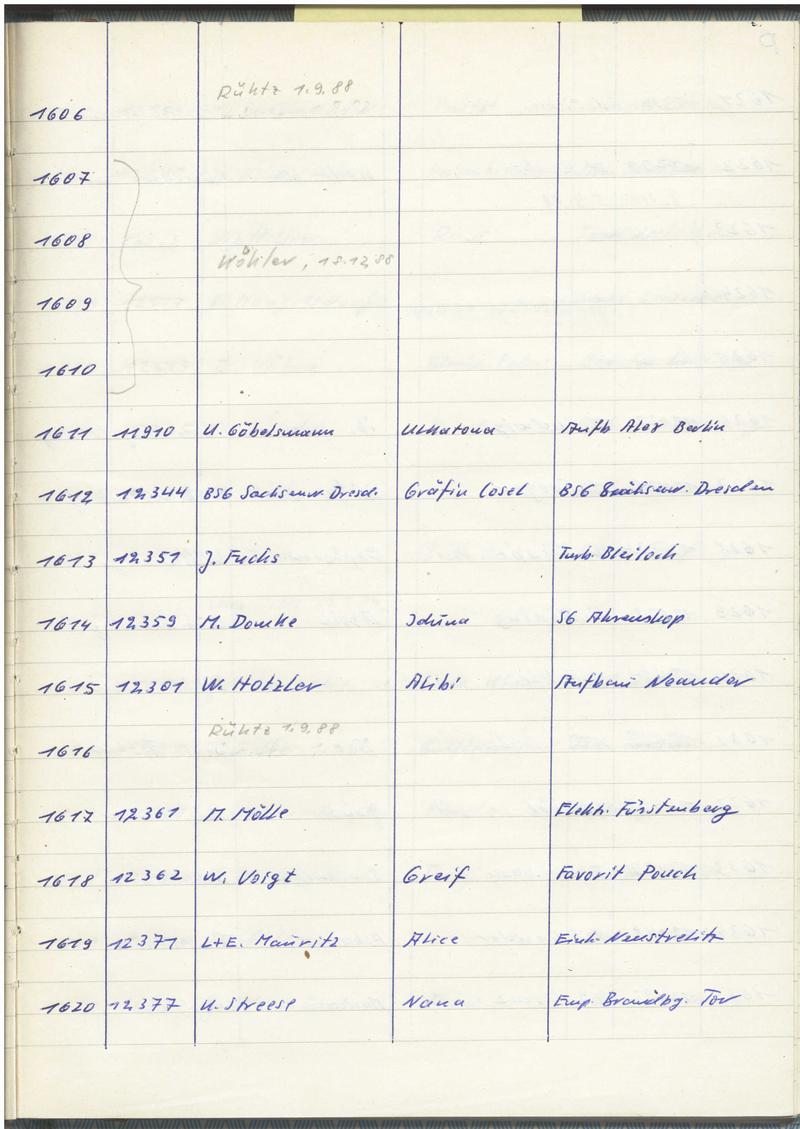 Rühtz 1.9.88
1606
1607
1608
Köhler, 18.12.88
1609
1610
1611 11910 U. Göbelsmann Ulkatona Aufb Alex Berlin
1612 12344 BSG Sachsenw. Dresd. Gräfin Cosel BSG Sachsenw. Dresden
1613 12351 J. Fuchs Turb. Bleiloch
1614 12359 M. Domke Iduna SG Ahrenshop
1615 12301 W. Hotzler Alibi Aufbau Neander
Rühtz 1.9.88
1616
1617 12361 M. Mölle Elektr. Fürstenberg
1618 12362 W. Voigt Greif Favorit Pouch
1619 12371 L+E. Mauritz Alice Einh. Neustrelitz
1620 12377 U. Streese Nana Emp. Brandbg. Tor